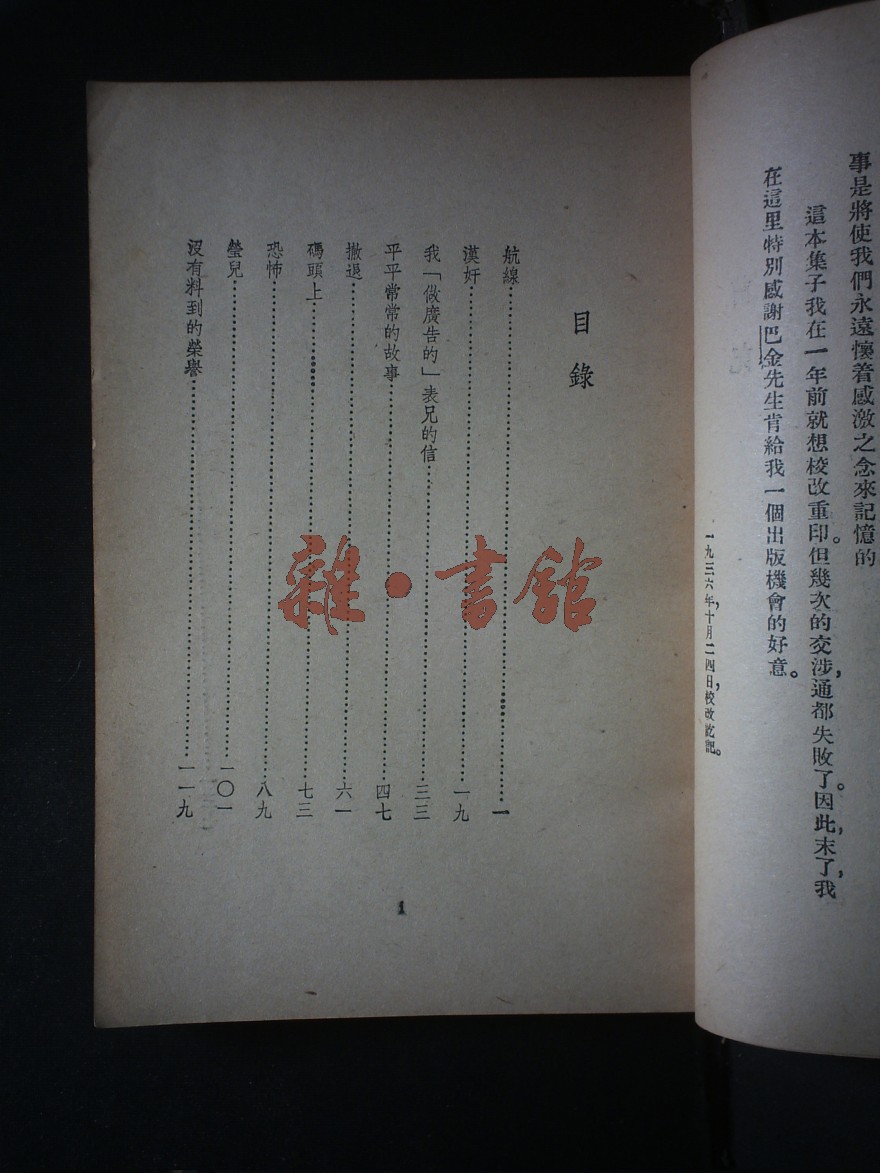 事是將使我們永遠懷着感激之念來記憶的
這本集子我在一年前就想校改重印。但幾次的交涉，通都失敗了。因此，末了，我
在這里特別感謝巴金先生肯給我一個出版機會的好意。
一九三六年，十月二四日，校改訖記。
目錄
航線……一
漢奸……一九
我「做廣告的」表兄的信……三三
平平常常的故事……四七
撤退……六一
碼頭上……七三
恐怖……八九
瑩兒……一〇一
沒有料到的榮譽……一一九
1
雜·書館